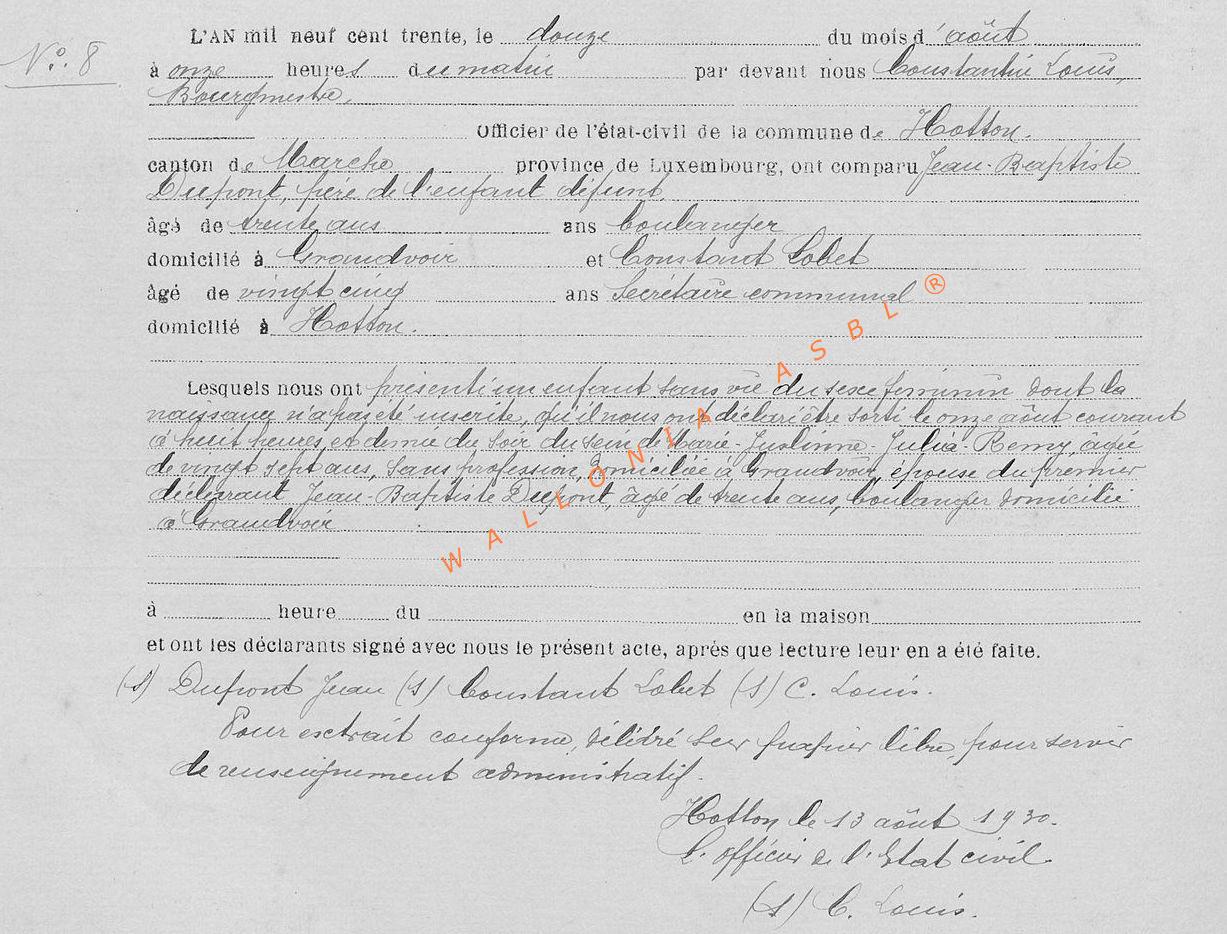 L'AN mil neuf cent trente, le douze du mois d'août
N°. 8
à onze heures du matin par devant nous Constantin Louis,
Bourgmestre,
Officier de l'état-civil de la commune de Hotton.
canton de Marche province de Luxembourg, ont comparu Jean-Baptiste
Dupont, père de l'enfant défunt,
âgé de trente ans ans boulanger
domicilié à Grandvoir et Constant Lobet
âgé de vingt cinq ans Secrétaire communal
domicilié à Hotton.
Lesquels nous ont présenté un enfant sans vie du sexe féminin dont la
naissance n'a pas été inscrite, qu'il nous ont déclaré être sorti le onze août courant
à huit heures et demie du soir du sein de Marie-Justinne Julia Remy, âgée
de vingt sept ans, sans profession, domiciliée à Grandvoir, épouse du premier
déclarant Jean-Baptiste Dupont, âgé de trente ans, boulanger domicilié
à Grandvoir
à heure du en la maison
et ont les déclarants signé avec nous le présent acte, après que lecture leur en a été faite.
(s) Dupont Jean (s) Constant Lobet (s) C. Louis.
Pour extrait conforme, délivré sur papier libre, pour servir
de renseignement administratif.
Hotton le 13 août 1930.
L'officier de l'Etat civil.
(s) C. Louis.
WALLONIA ASBL ®